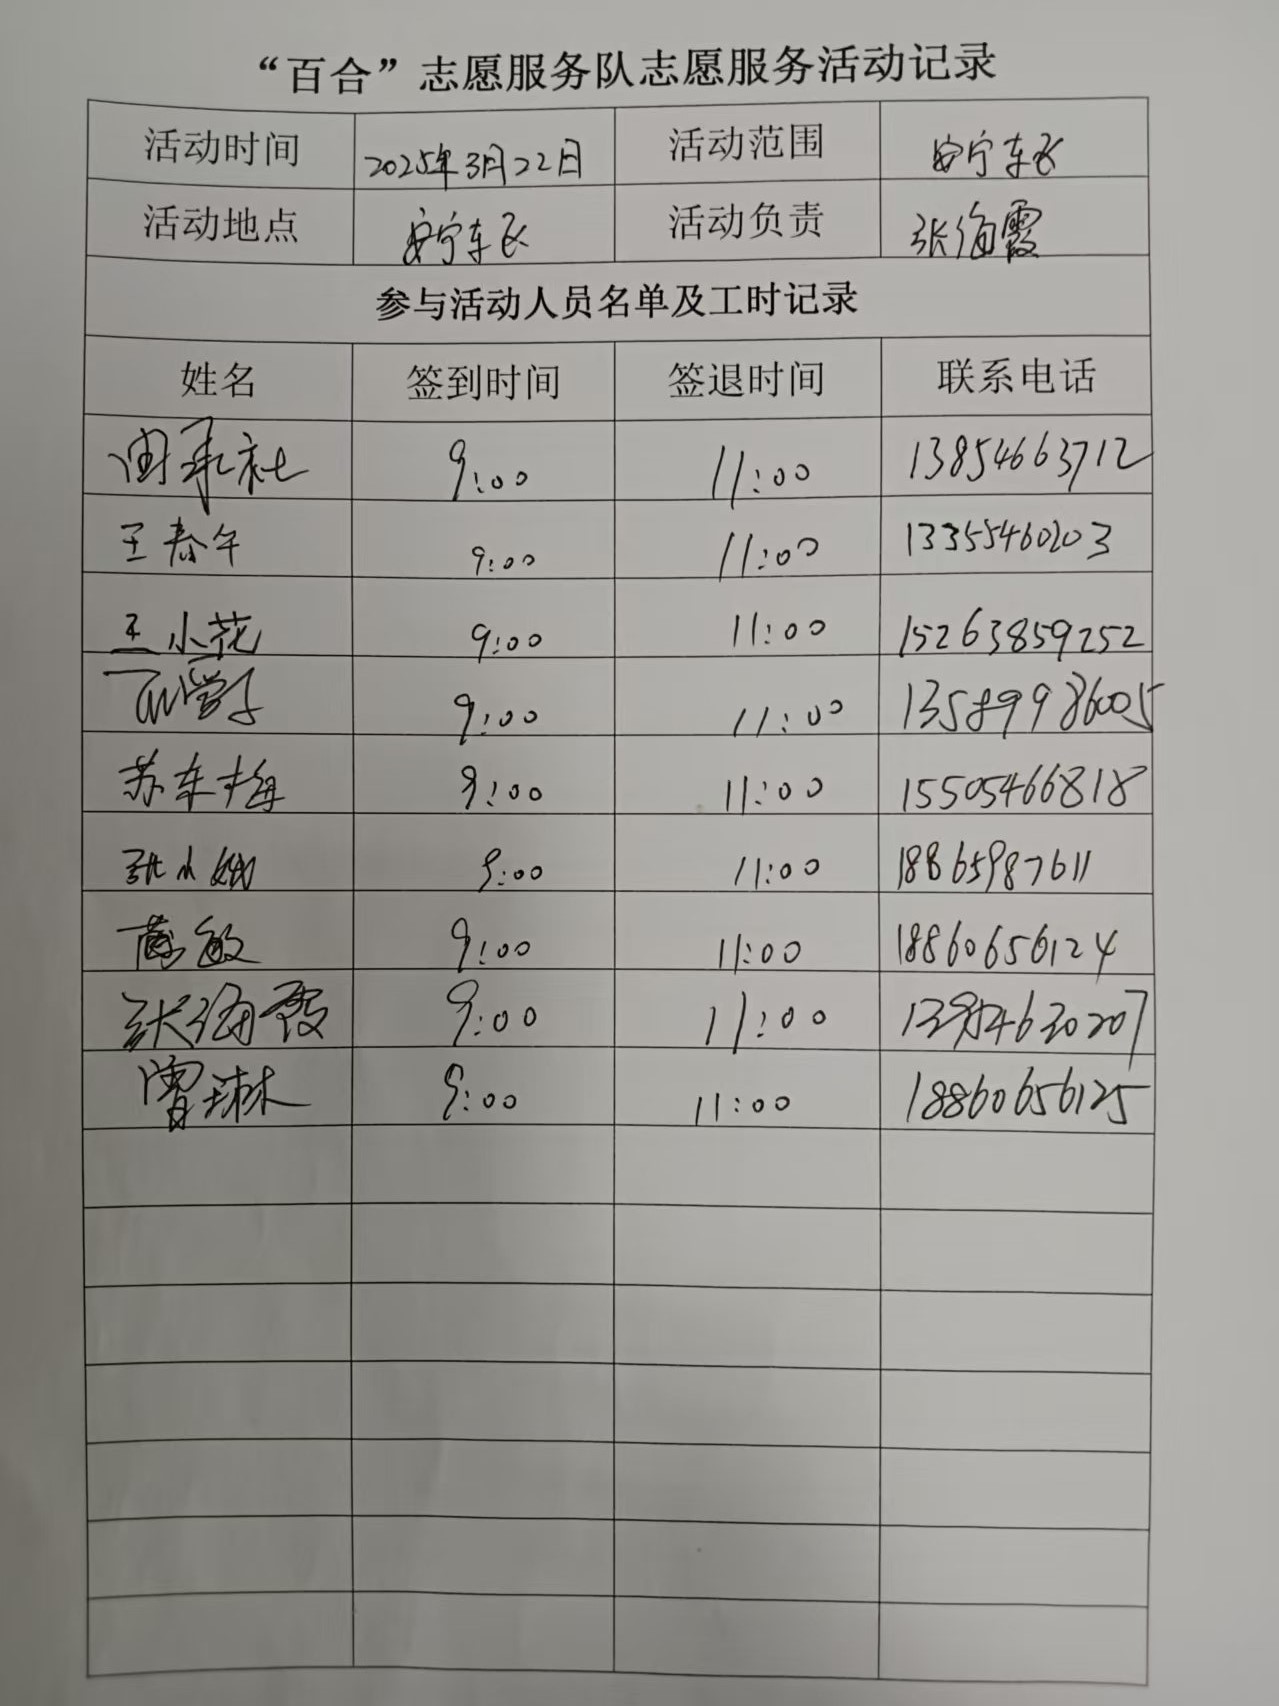 “百合”志愿服务队志愿服务活动记录
活动时间 2025年3月22日 活动范围 安宁东飞
活动地点 安宁东飞 活动负责 张海霞
参与活动人员名单及工时记录
姓名 签到时间 签退时间 联系电话
9:00 11:00 13854663712
王春午 9:00 11:00 13355460203
王小花 9:00 11:00 15263859252
9:00 11:00 13589986005
苏东梅 9:00 11:00 15505466818
张小 9:00 11:00 18865987611
敏 9:00 11:00 18860656124
张海霞 9:00 11:00
曹琳 9:00 11:00 18860656125